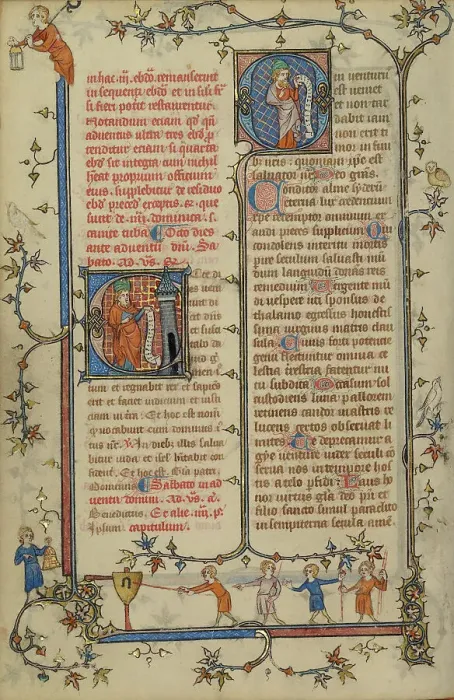 in hac .iij. ebdõ. remanserint
in sequenti ebdõ et in sili
si fieri potit restaurentur.
Notandum etiam qđ qñ
aduentus ultra tres ebdõ p
tenditur etiam si quarta
ebdõ sit integra cum nichil
heat propium officium
eius. supplebitur de residuo
ebdõ preced exceptis. &. que
sunt de .iiij. dominica .s.
canite tuba. Octo dies
ante aduentū dñi. Sa
bato. ad. vs.
Ecce di
es ueni
unt di
cit
et susci
tabo da
uid g
men
tum et regnabit rex et sapiēs
erit et faciet iudicium et iusti
ciam in tra. Et hoc est nomē
quod uocabunt eum dominus i
tus nr. V. In dieb; illis salua
bitur iuda. et isrł habitabit con
fidenter. Et hoc est. Gła patri.
Dominus. Sabato in ad
uentu domini. ad. vs. a.
Benedictus. Et alie .iiij. p
ipsum. capitulum.
in venturus
est ueniet
et non tar
dabit iam
non erit ti
mor in fini
bus nris: quoniam ipse est
saluator nr. Deo grãs.
Conditor alme syderū
eterna lux credencium
xpe redemptor omnium ex
audi preces supplicum. Qui
condolens interitu mortis
pire seculum saluasti mū
dum languidū donās reis
remedium. Vergente mū
di vespere uti sponsus de
thalamo egressus honestis
sima uirginis matris clau
sula. Cuius forti potencie
genu flectuntur omnia ce
lestia trestria fatentur nu
tu subdita. Occasum sol
custodiens luna pallorem
retinens candor in astris re
lucens certos obseruat li
mites. Te deprecamur a
gye uenture iudex seculi cō
serua nos in tempore hos
tis a telo pfidi. Laus ho
nor uirtus gła deo pri et
filio sancto simul paraclito
in sempiterna secula amē.